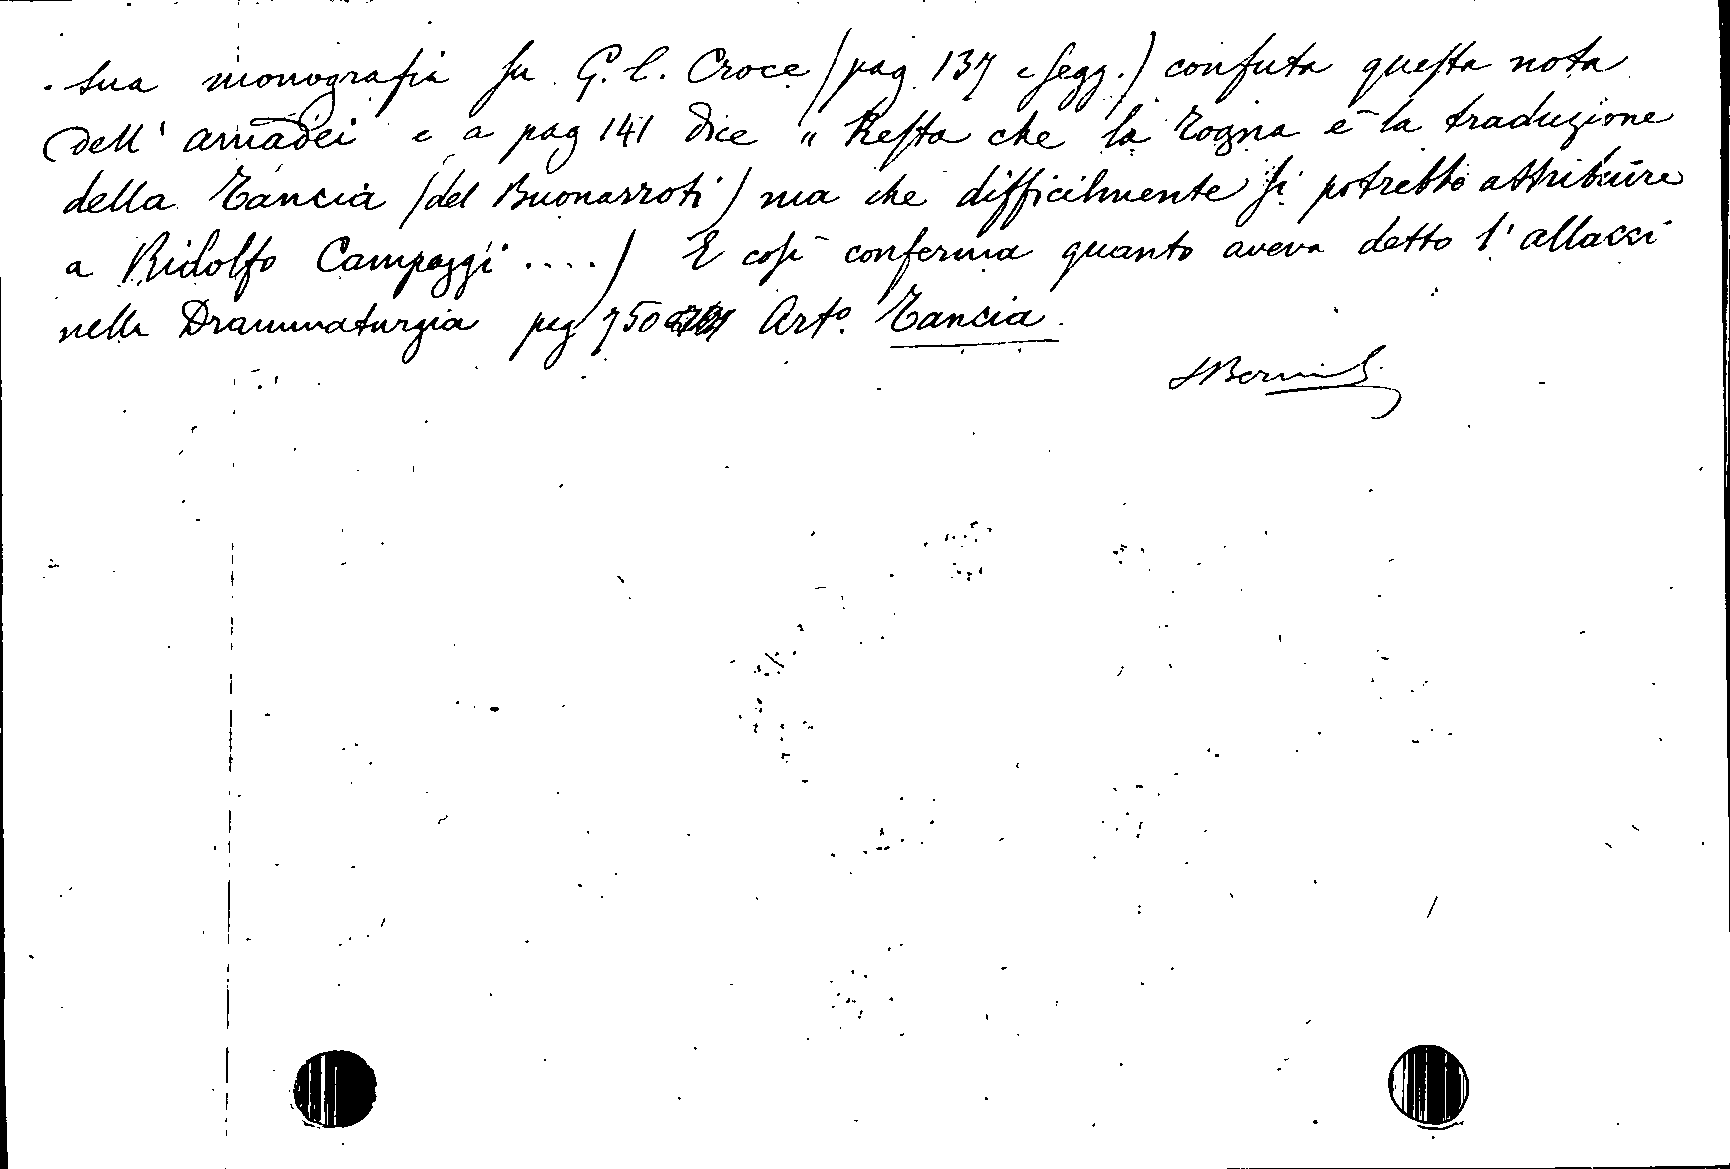 sua monografia su G. C. Croce (pag 137 e segg.) confuta questa nota
dell' Amadei e a pag 141 dice " Resta che la Togna è la traduzione
della Tancia (del Buonarroti) ma che difficilmente si potrebbe attribuire
a Ridolfo Campeggi ....) E così conferma quanto aveva detto l' Allacci
nella Drammaturgia pag 750 Arto. Tancia.